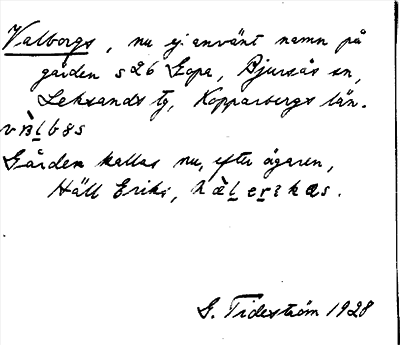 Valborgs, nu ej använt namn på
gården s 26 Gopa, Bjursås sn,
Leksands tg, Kopparbergs län.
Gården kallas nu, efter ägaren,
Häll Eriks,
G. Tideström 1928